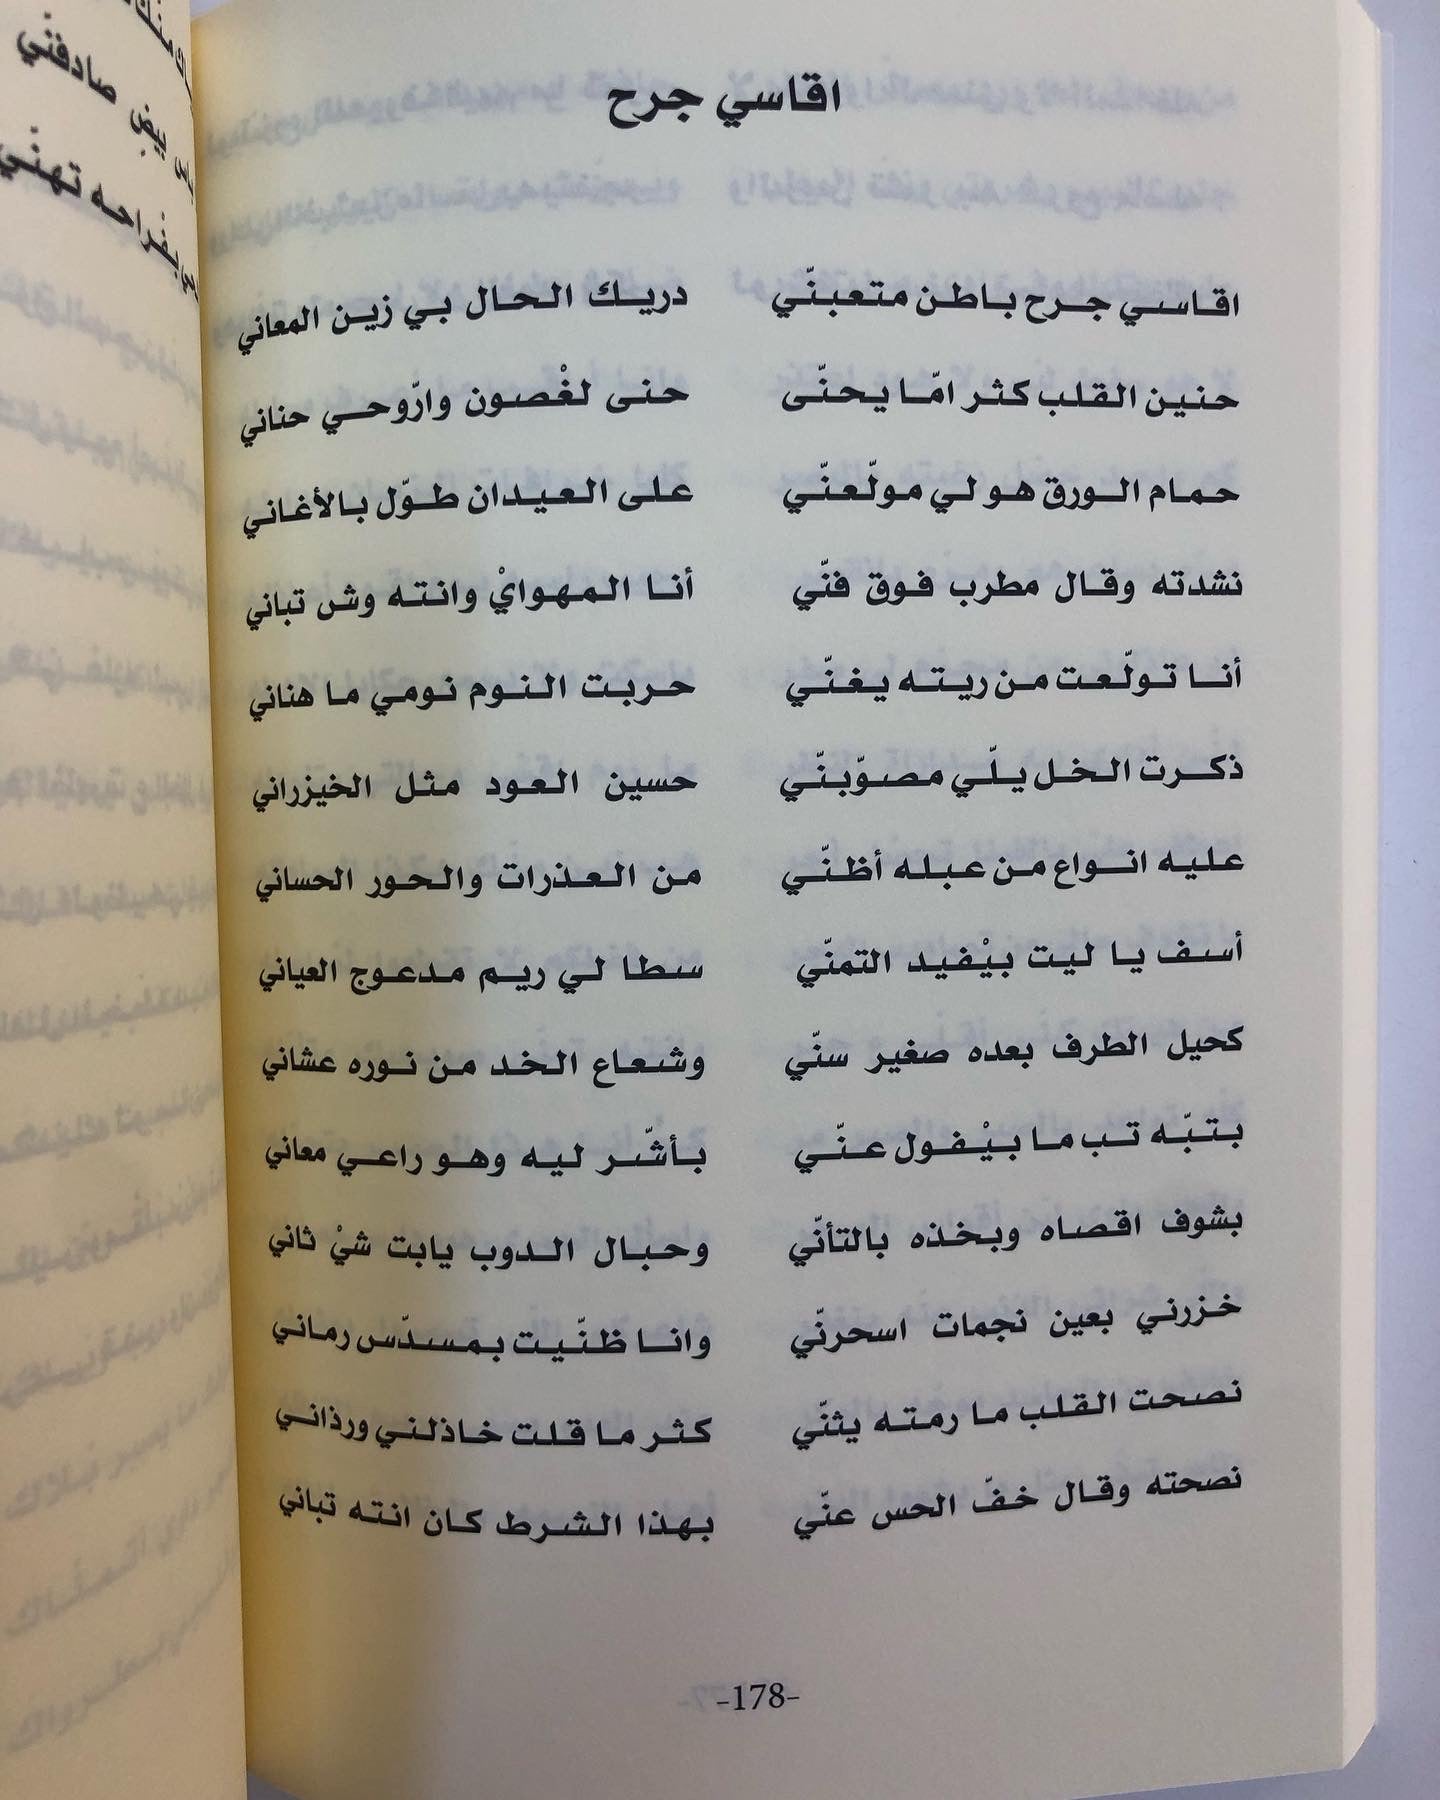 صادفنّي
بيض
بفراحه تهنّي
اقاسي جرح
اقاسي جرح باطن متعبنّي دريك الحال بي زين المعاني
حنين القلب كثر امّا يحنّى حنى لغْصون وارّوحي حناني
حمام الورق هو لي مولّعنّي على العيدان طوّل بالأغاني
نشدته وقال مطرب فوق فنّي أنا المهوايْ وانته وش تباني
أنا تولّعت من ريته يغنّي حربت النوم نومي ما هناني
ذكرت الخل يلّي مصوّبنّي حسين العود مثل الخيزراني
عليه انواع من عبله أظنّي من العذرات والحور الحساني
أسف يا ليت بيْفيد التمنّي سطا لي ريم مدعوج العياني
كحيل الطرف بعده صغير سنّي وشعاع الخد من نوره عشاني
بتبّه تب ما بيْفول عنّي بأشّر ليه وهو راعي معاني
بشوف اقصاه وبخذه بالتأنّي وحبال الدوب يابت شيْ ثاني
خزرني بعين نجمات اسحرنّي وانا ظنّيت بمسدّس رماني
نصحت القلب ما رمته يثنّي كثر ما قلت خاذلني ورذاني
نصحته وقال خفّ الحس عنّي بهذا الشرط كان انته تباني
-178-